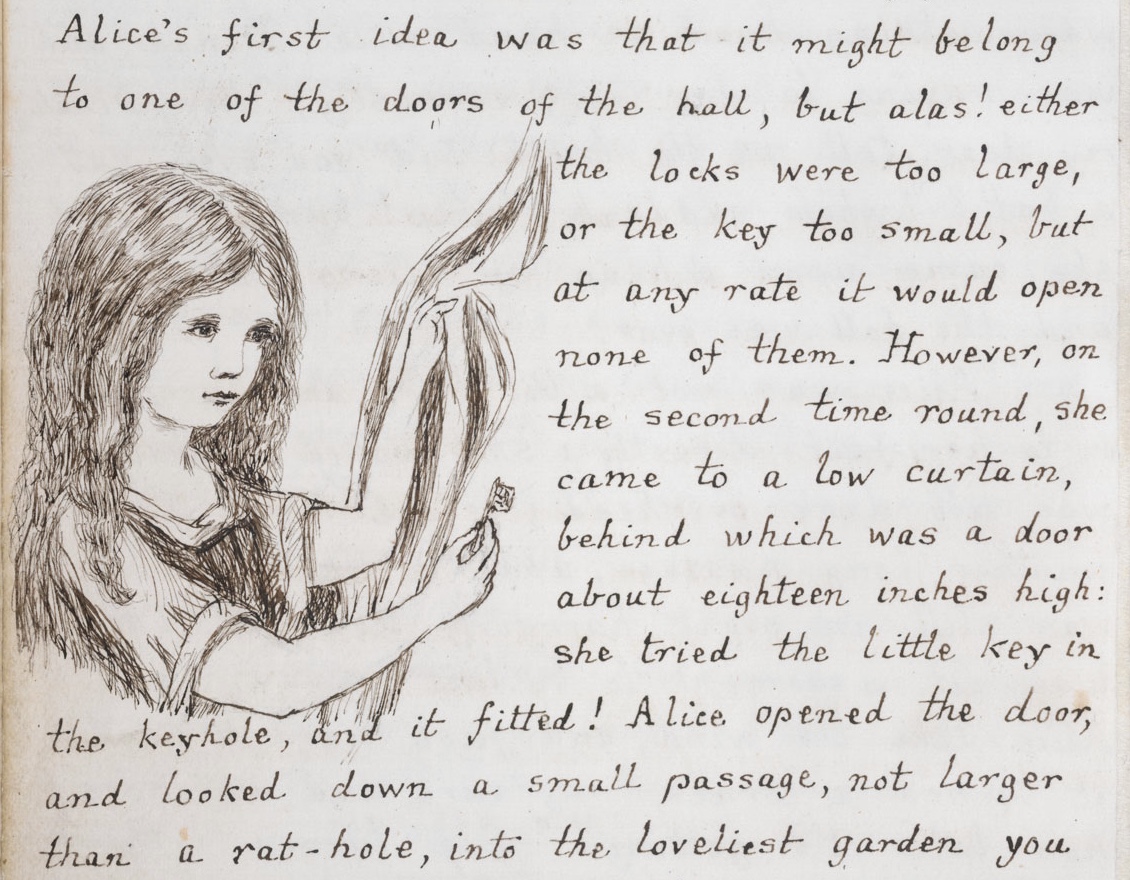 Alice's first idea was that it might belong
to one of the doors of the hall, but alas! either
the locks were too large,
or the key too small, but
at any rate it would open
none of them. However, on
the second time round, she
came to a low curtain,
behind which was a door
about eighteen inches high:
she tried the little key in
the keyhole, and it fitted! Alice opened the door,
and looked down a small passage, not larger
than a rat-hole, into the loveliest garden you